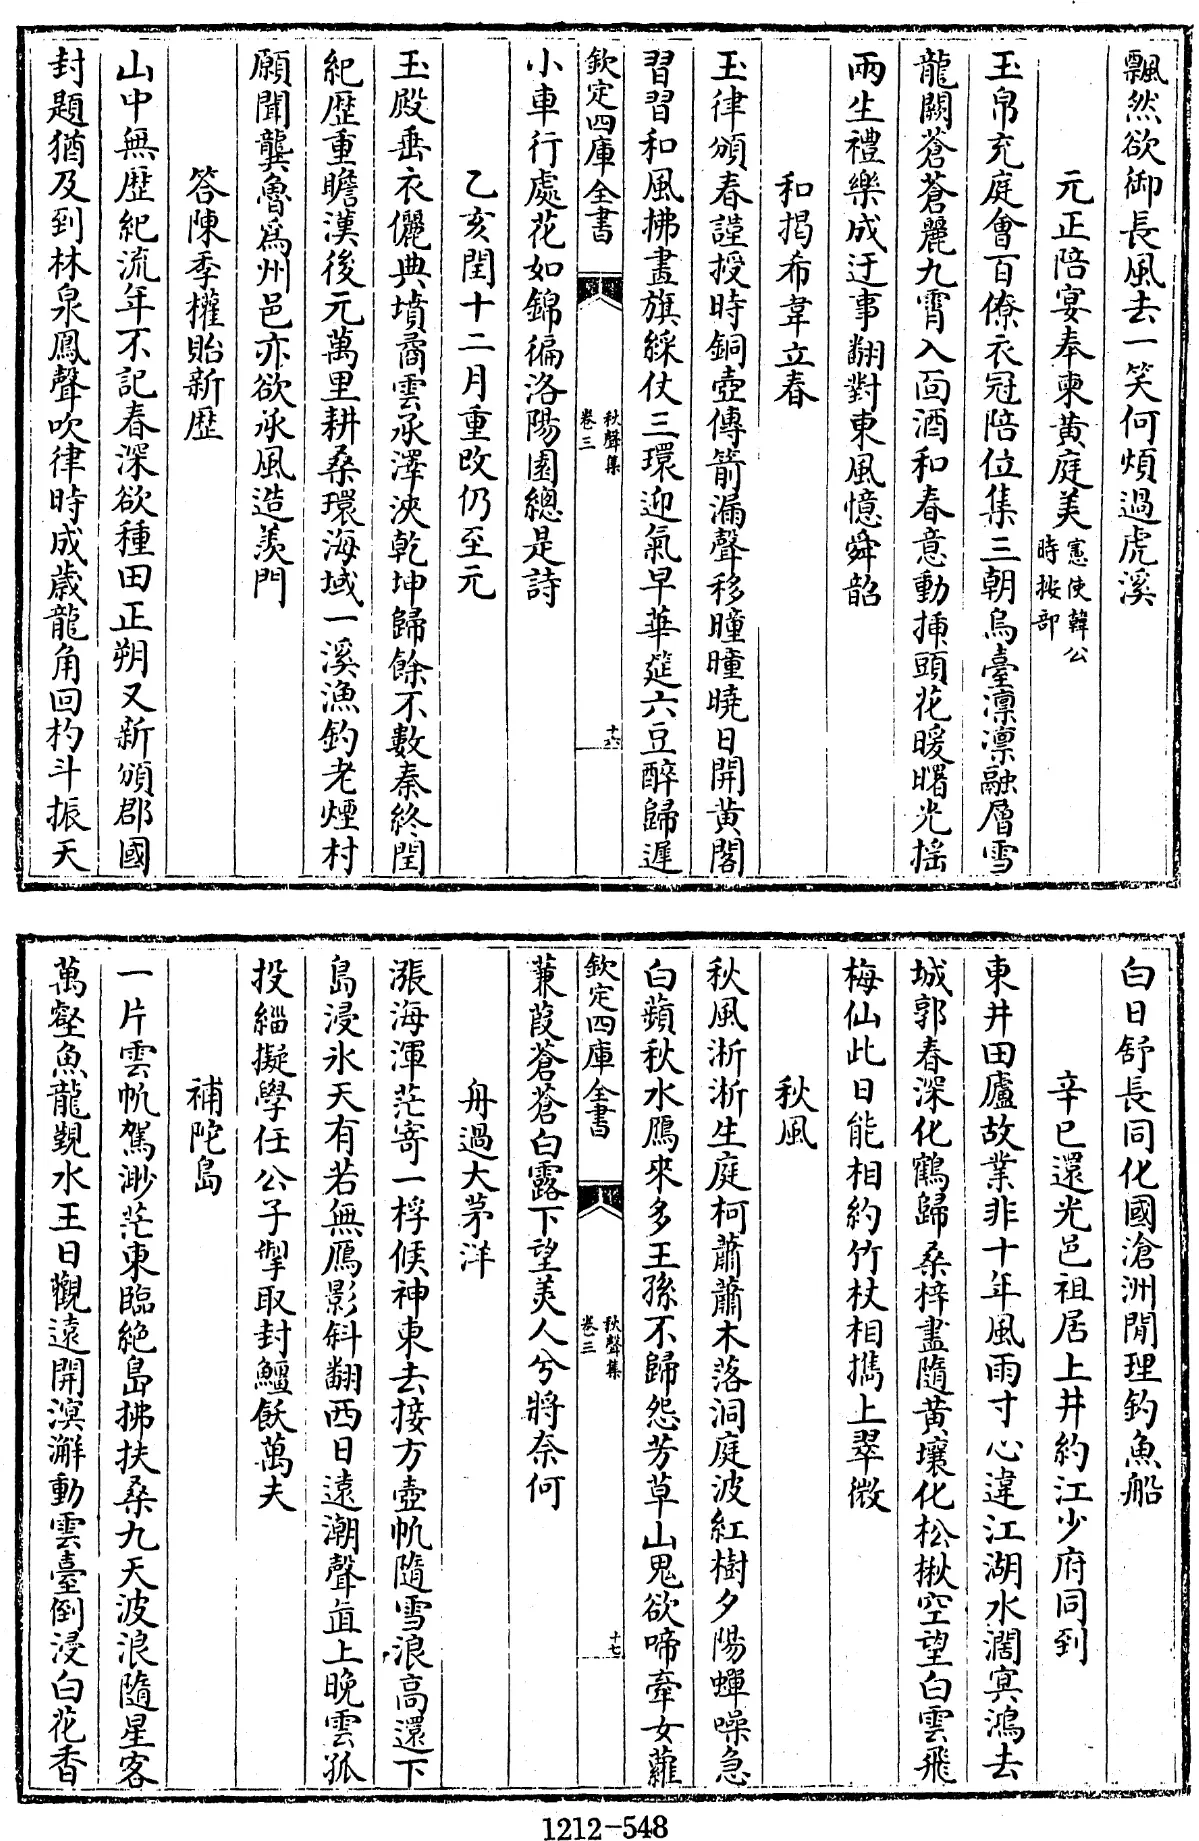 飄然欲御長風去一笑何煩過虎溪
元正陪宴奉柬黄庭美憲使韓公時按部
玉帛充庭會百僚衣冠陪位集三朝烏臺凛凛融層雪
龍闕蒼蒼麗九霄入面酒和春意動揷頭花暖曙光揺
兩生禮樂成迂事翻對東風憶舜韶
和掲希韋立春
玉律頒春謹授時銅壺傳箭漏聲移曈曈曉日開黄閣
習習和風拂畫旗綵仗三環迎氣早華筵六豆醉歸遲
欽定四庫全書
秋聲集
卷三
十六
小車行處花如錦徧洛陽園總是詩
乙亥閏十二月重改仍至元
玉殿垂衣儷典墳矞雲承澤浹乾坤歸餘不數秦終閏
紀歴重瞻漢後元萬里耕桑環海域一溪漁釣老煙村
願聞龔魯爲州邑亦欲承風造羨門
答陳季權貽新歴
山中無歴紀流年不記春深欲種田正朔又新頒郡國
封題猶及到林泉鳳聲吹律時成歲龍角回杓斗振天
白日舒長同化國滄洲閒理釣魚船
辛巳還光邑祖居上井約江少府同到
東井田廬故業非十年風雨寸心違江湖水濶冥鴻去
城郭春深化鶴歸桑梓盡隨黄壤化松楸空望白雲飛
梅仙此日能相約竹杖相携上翠微
秋風
秋風淅淅生庭柯蕭蕭木落洞庭波紅樹夕陽蟬噪急
白蘋秋水鴈來多王孫不歸怨芳草山鬼欲啼牽女蘿
欽定四庫全書
秋聲集
卷三
十七
蒹葭蒼蒼白露下望美人兮將奈何
舟過大茅洋
漲海渾茫寄一桴候神東去接方壺帆隨雪浪髙還下
島浸氷天有若無鴈影斜翻西日遠潮聲直上晩雲孤
投緇擬學任公子掣取封鱷飫萬夫
補陀島
一片雲帆駕渺茫東臨絶島拂扶桑九天波浪隨星客
萬壑魚龍覲水王日觀遠開溟澥動雲臺倒浸白花香
1212-548